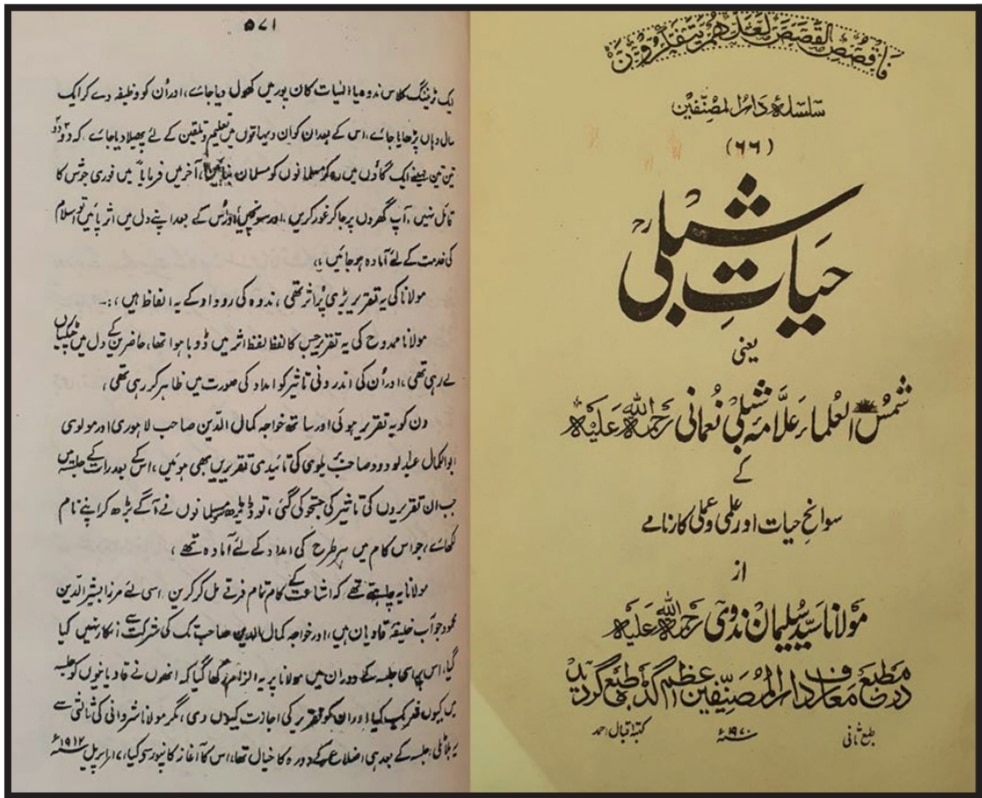 فَاقْصُصِ الْقَصَصَ لَعَلَّهُمْ يَتَفَكَّرُونَ
سلسلہ دار المصنفین
(۶۶)
حیاتِ شبلیؒ
یعنی
شمس العلماء علامہ شبلی نعمانی رحمۃ اللہ علیہ
کے
سوانح حیات اور علمی و عملی کارنامے
از
مولانا سید سلیمان ندوی رحمۃ اللہ علیہ
در مطبع معارف دار المصنفین اعظم گڈہ طبع گردید
طبع ثانی ۱۹۷۰ء کتبہ اقبال احمد
۵۷۱
ایک ٹریننگ کلاس ندوہ یا الٰہیات کان پور میں کھول دیا جائے، اور اُن کو وظیفہ دے کر ایک
سال وہاں پڑھایا جائے، اس کے بعد ان کو ان دیہاتوں میں تعلیم و تلقین کے لئے پھیلا دیا جائے، کہ دو دو
تین تین مہینے ایک گاؤں میں رہ کر مسلمانوں کو مسلمان بنائیں، آخر میں فرمایا میں فوری جوش کا
قائل نہیں، آپ گھروں پر جا کر غور کریں، اور سونچیں اور اُس کے بعد اپنے دل میں اثر پائیں تو اسلام
کی خدمت کے لئے آمادہ ہو جائیں،،
مولانا کی یہ تقریر بڑی پُر اثر تھی، ندوہ کی روداد کے یہ الفاظ ہیں :۔
مولانا ممدوح کی یہ تقریر جس کا لفظ لفظ اثر میں ڈوبا ہوا تھا، حاضرین کے دل میں چٹکیاں
لے رہی تھی، اور اُن کی اندرونی تاثیر کو امداد کی صورت میں ظاہر کر رہی تھی،
دن کو یہ تقریر ہوئی اور ساتھ خواجہ کمال الدین صاحب لاہوری اور مولوی
ابوالکمال عبدالودود صاحب بریلوی کی تائیدی تقریریں بھی ہوئیں، اس کے بعد رات کے جلسہ میں
جب ان تقریروں کی تاثیر کی جستجو کی گئی، تو ڈیڑھ سو مسلمانوں نے آگے بڑھ کر اپنے نام
لکھائے، جو اس کام میں ہر طرح کی امداد کے لئے آمادہ تھے،
مولانا یہ چاہتے تھے کہ اشاعت کے کام تمام فرقے مل کر کریں اسی لئے مرزا بشیر الدین
محمود جو اب خلیفۂ قادیان ہیں، اور خواجہ کمال الدین صاحب تک کی شرکت سے انکار نہیں کیا
گیا، اس پر اسی جلسہ کے دوران میں مولانا پر یہ الزام رکھا گیا کہ انھوں نے قادیانیوں کو جلسہ
میں کیوں شریک کیا اور ان کو تقریر کی اجازت کیوں دی، مگر مولانا شروانی کی ثالثی سے
یہ بلا ٹلی، جلسہ کے بعد ہی اضلاع کے دورہ کا خیال تھا، اس کا آغاز کانپور سے کیا، ۱۷ اپریل ۱۹۱۲ء